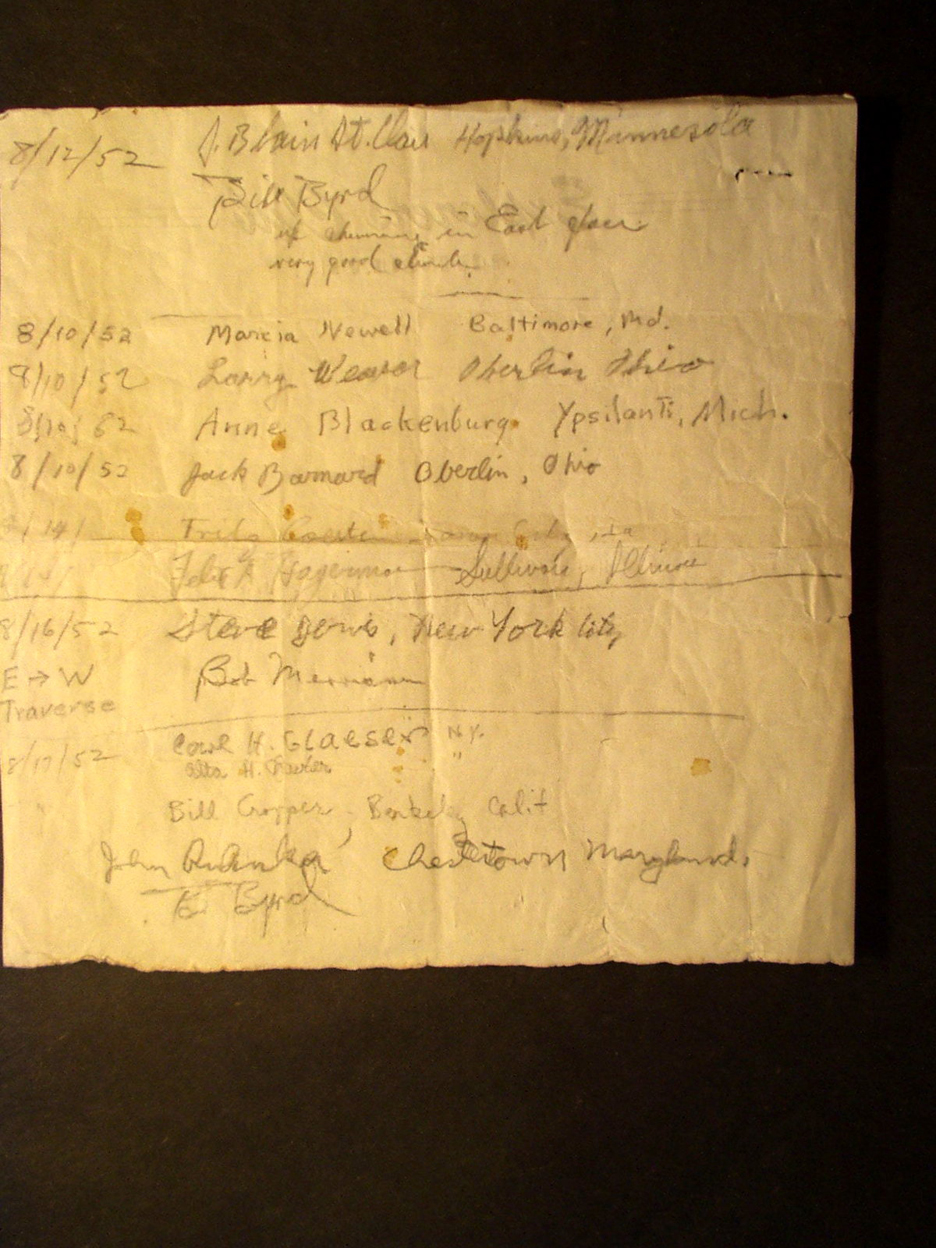 8/12/52 J. Blain St. Clair Hopkins, Minnesota
Bill Byrd
up chimney in East face
very good climb.
8/10/52 Marcia Newell Baltimore, Md.
8/10/52 Larry Weaver Oberlin Ohio
8/10/52 Anne Blackenburg Ypsilanti, Mich.
8/10/52 Jack Barnard Oberlin, Ohio
/14/ Frits
Felix Hagerman Sullivan, Illinois
8/16/52 Steve Jervis, New York City
E → W Bob Merriam
Traverse
8/17/52 Carl H. Glaeser N.Y.
H. "
Bill Cropper, Berkeley Calif
John Chestertown Maryland.
Byrd